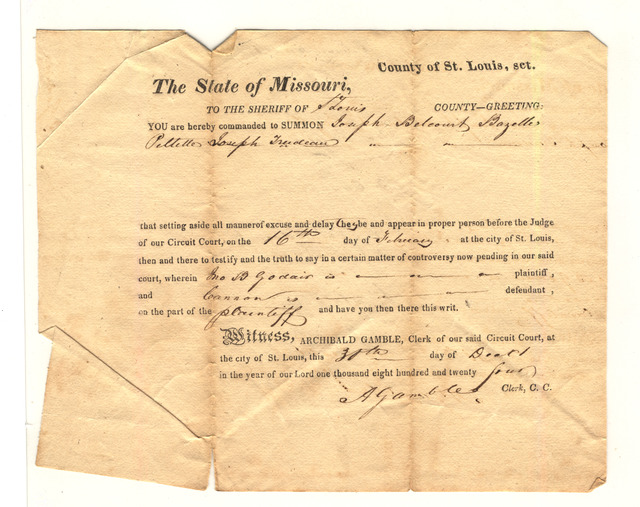 County of St. Louis, sct.
The State of Missouri,
TO THE SHERIFF OF St Louis COUNTY—GREETING:
YOU are hereby commanded to SUMMON Joseph Belcourt Bazelle
Pelletie Joseph Trudeau
that setting aside all mannerof excuse and delay they be and appear in proper person before the Judge
of our Circuit Court, on the 16th day of February at the city of St. Louis,
then and there to testify and the truth to say in a certain matter of controversy now pending in our said
court, wherein Jno B Godair is plaintiff,
and Cannon is defendant,
on the part of the plaintiff and have you then there this writ.
Witness, ARCHIBALD GAMBLE, Clerk of our said Circuit Court, at
the city of St. Louis, this 30th day of Decr
in the year of our Lord one thousand eight hundred and twenty four
A Gamble Clerk, C. C.